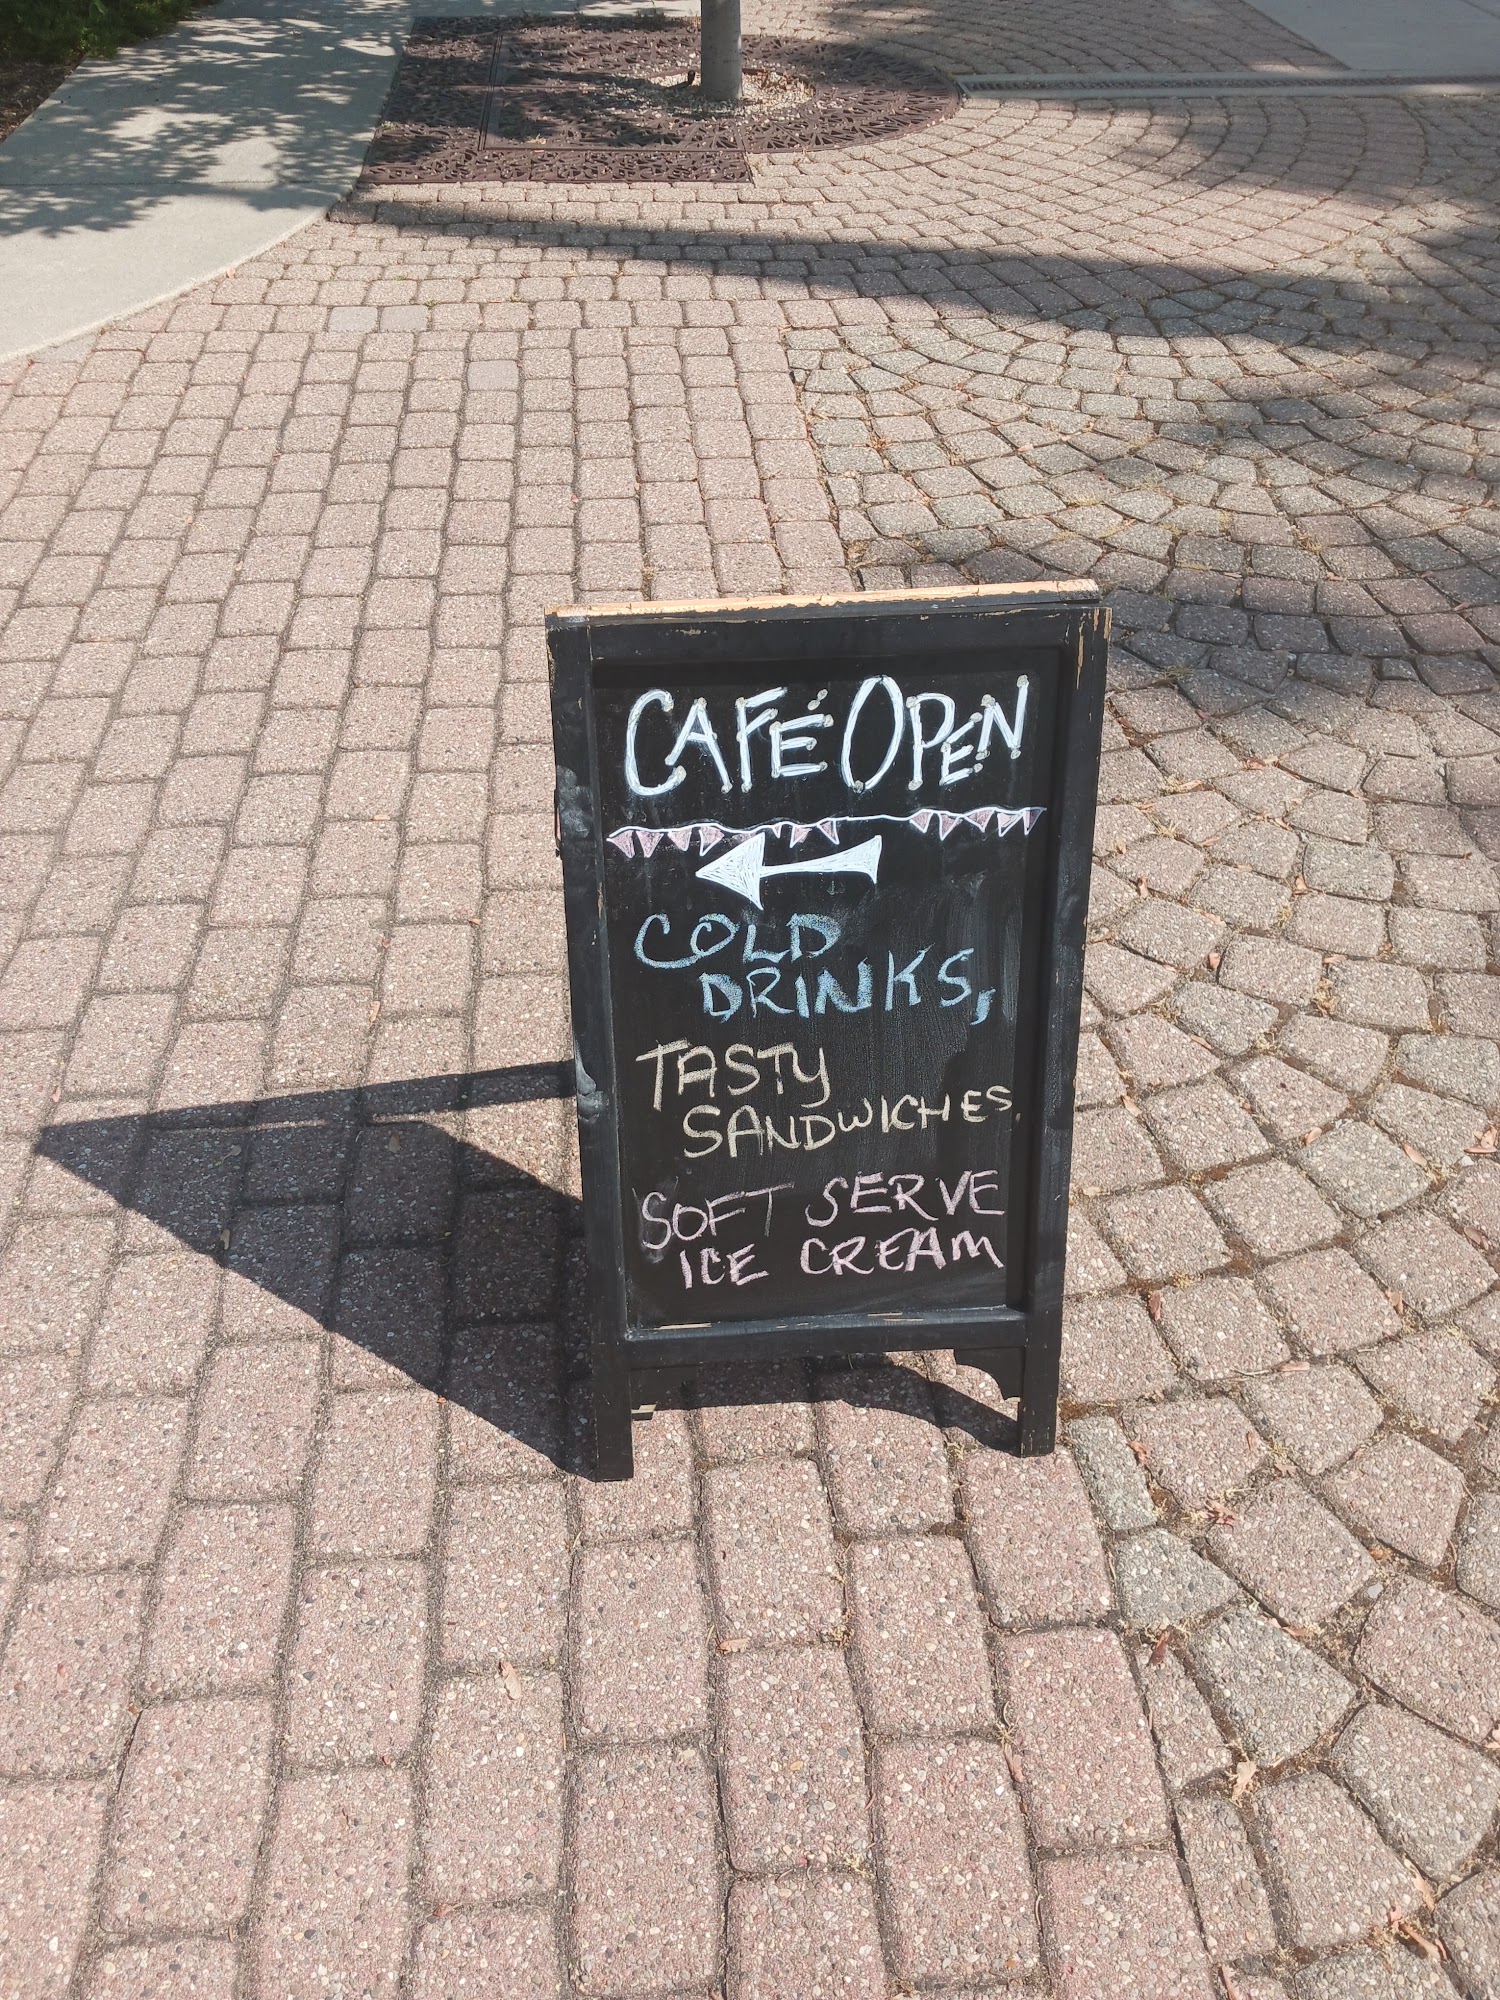 CAFÉ OPEN
COLD
DRINKS,
TASTY
SANDWICHES,
SOFT SERVE
ICE CREAM